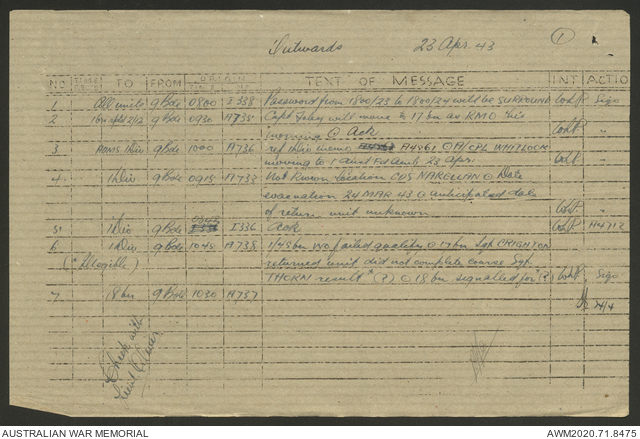 Outwards 23 Apr 43 1
NO TO FROM ORIGIN TEXT OF MESSAGE INT ACTION
1 All units 9 Bde 0800 I 338 Password from 1800/23 to 1800/24 will be SURROUND
2 9 Bde 0930 A735 Capt will move to 17 bn as RMO this
morning Ack
3 ADMS 1 Div 9 Bde 1000 A736 ref this memo A4861 A/CPL WHITLOCK
moving to 1 Aust Fd Amb 23 Apr.
4 1 Div 9 Bde 0915 A733 Not known location CDS NARELLAN Date
evacuation 24 MAR 43 anticipated date
of return unit unknown
5 1 Div 9 Bde I336 Ack A4712
6 1 Div 9 Bde 1045 A738 1/45 bn WO failed qualify 17 bn Sgt CRIGHTON
(* Illegible) returned unit did not complete course Sgt
THORN result * (?) 18 bn signalled for * (?)
7 18 bn 9 Bde 1030 A737
24/4
Check with
Lieut
AUSTRALIAN WAR MEMORIAL AWM2020.71.8475